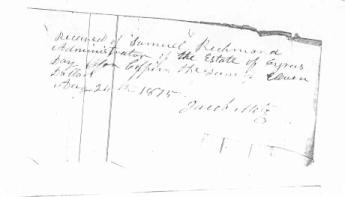 Received of Samuel Richmond
Administrator of the Estate of Cyrus
Day for Coffin the sum of Eleven
Dollars
Aug 24th 1875
Jacob Metz